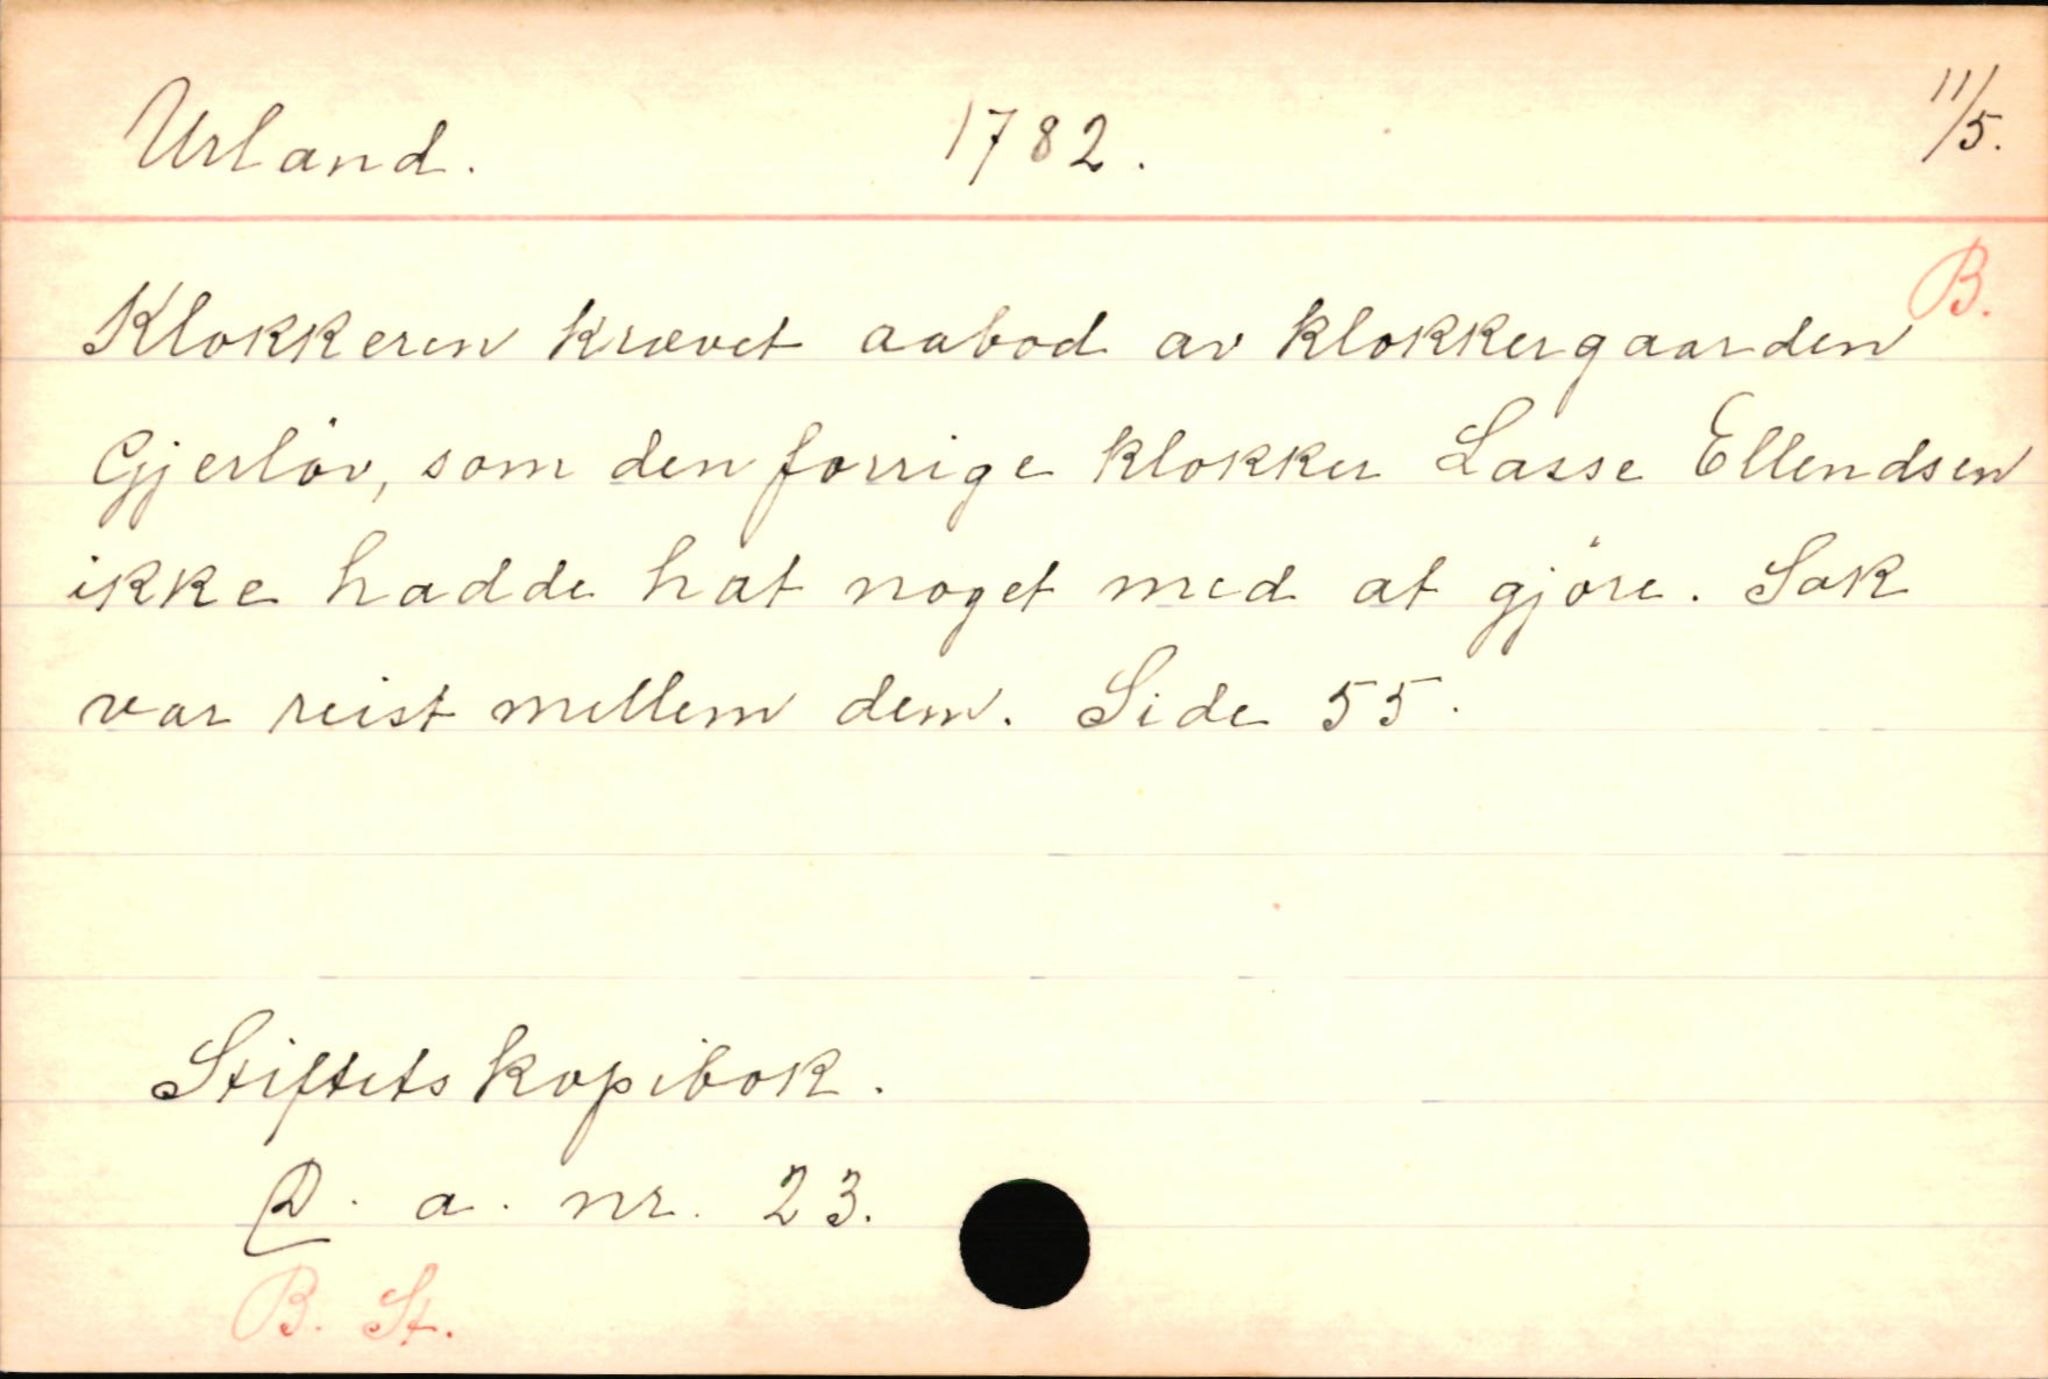 Urland. 1782. 11/5.
B.
Klokkeren krævet aabod av klokkergaarden
Gjerløv, som den forrige klokker Lasse Ellendsen
ikke hadde hat noget med at gjøre. Sak
var reist mellem dem. Side 55.
Stiftets kopibok.
D. a. nr. 23.
B. St.